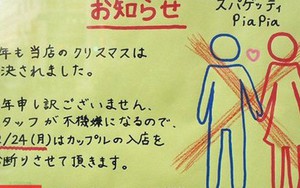 お知らせ
スパゲッティ
PiaPia
年も当店のクリスマスは
決されました。
年申し訳ございません、
タッフが不機嫌になるので、
2/24(月)はカップルの入店を
断りさせて頂きます。